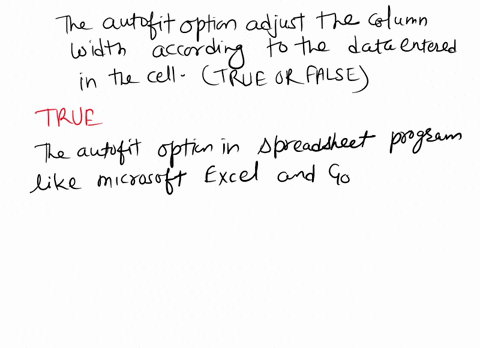 The autofit option adjust the column
width according to the data entered
in the cell- (TRUE OR FALSE)
TRUE
The autofit option in spreadsheet program
like microsoft Excel and Go